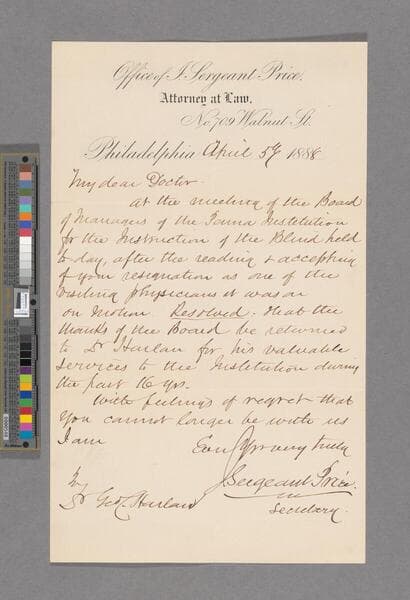 Office of J. Sergeant Price.
Attorney at Law.
No. 709 Walnut St.
Philadelphia April 5th 1888
My dear Doctor
At the meeting of the Board
of Managers of the Penna Institution
for the Instruction of the Blind held
to day, after the reading & accepting
of your resignation as one of the
visiting physicians it was on
on motion Resolved. that the
thanks of the Board be returned
to Dr Harlan for his valuable
services to the Institution during
the past 16 yrs.
With feelings of regret that
you cannot longer be with us
I am
Ever Yours very truly
J Sergeant Price
Secretary.
To
Dr Geo. C. Harlan